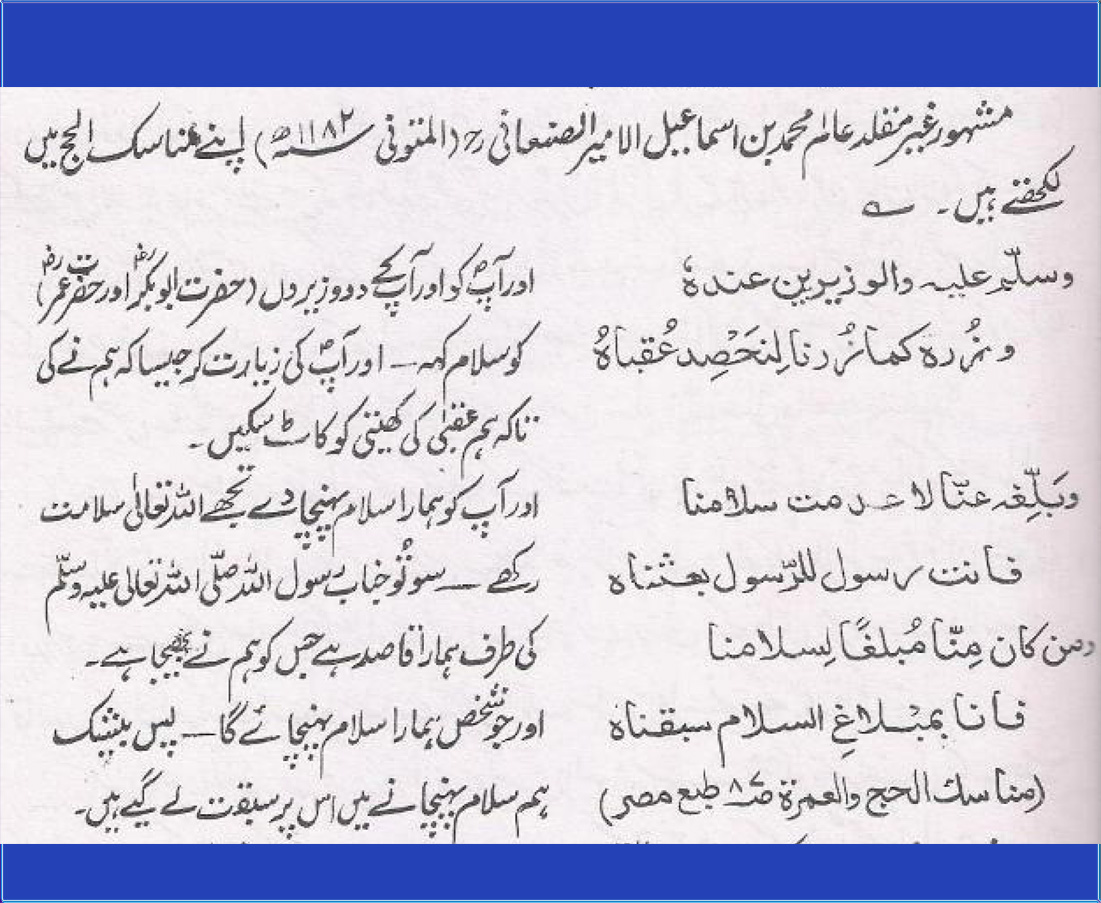 مشہور غیر مقلد عالم محمد بن اسماعیل الامیر الصنعانی رح (المتوفی ۱۱۸۲ھ) اپنے مناسک الحج میں
لکھتے ہیں۔ ؎
وسلّم علیہ والوزیرین عندہٗ
وزُرہ کما زُرنا لِنَحْصِد عُقباہُ
وبَلِّغہ عنّا لا عدمت سلامنا
فانت رسول للرّسول بعثناہ
ومن کان مِنّا مُبلغًا لِسلامنا
فانا بمبْلاغِ السلام سبقناہ
(مناسك الحج والعمرة صـ۸ طبع مصر)
اور آپؐ کو اور آپ کے دو وزیروں (حضرت ابوبکرؓ اور حضرت عمرؓ)
کو سلام کہہ — اور آپؐ کی زیارت کر جیسا کہ ہم نے کی
تاکہ ہم عقبٰی کی کھیتی کو کاٹ سکیں۔
اور آپ کو ہمارا سلام پہنچا دے تجھے اللہ تعالٰی سلامت
رکھے — سو تُو جناب رسول اللہ صلّی اللہ تعالٰی علیہ وسلّم
کی طرف ہمارا قاصد ہے جس کو ہم نے بھیجا ہے۔
اور جو شخص ہمارا سلام پہنچائے گا — پس بیشک
ہم سلام پہنچانے میں اس پر سبقت لے گیے ہیں۔